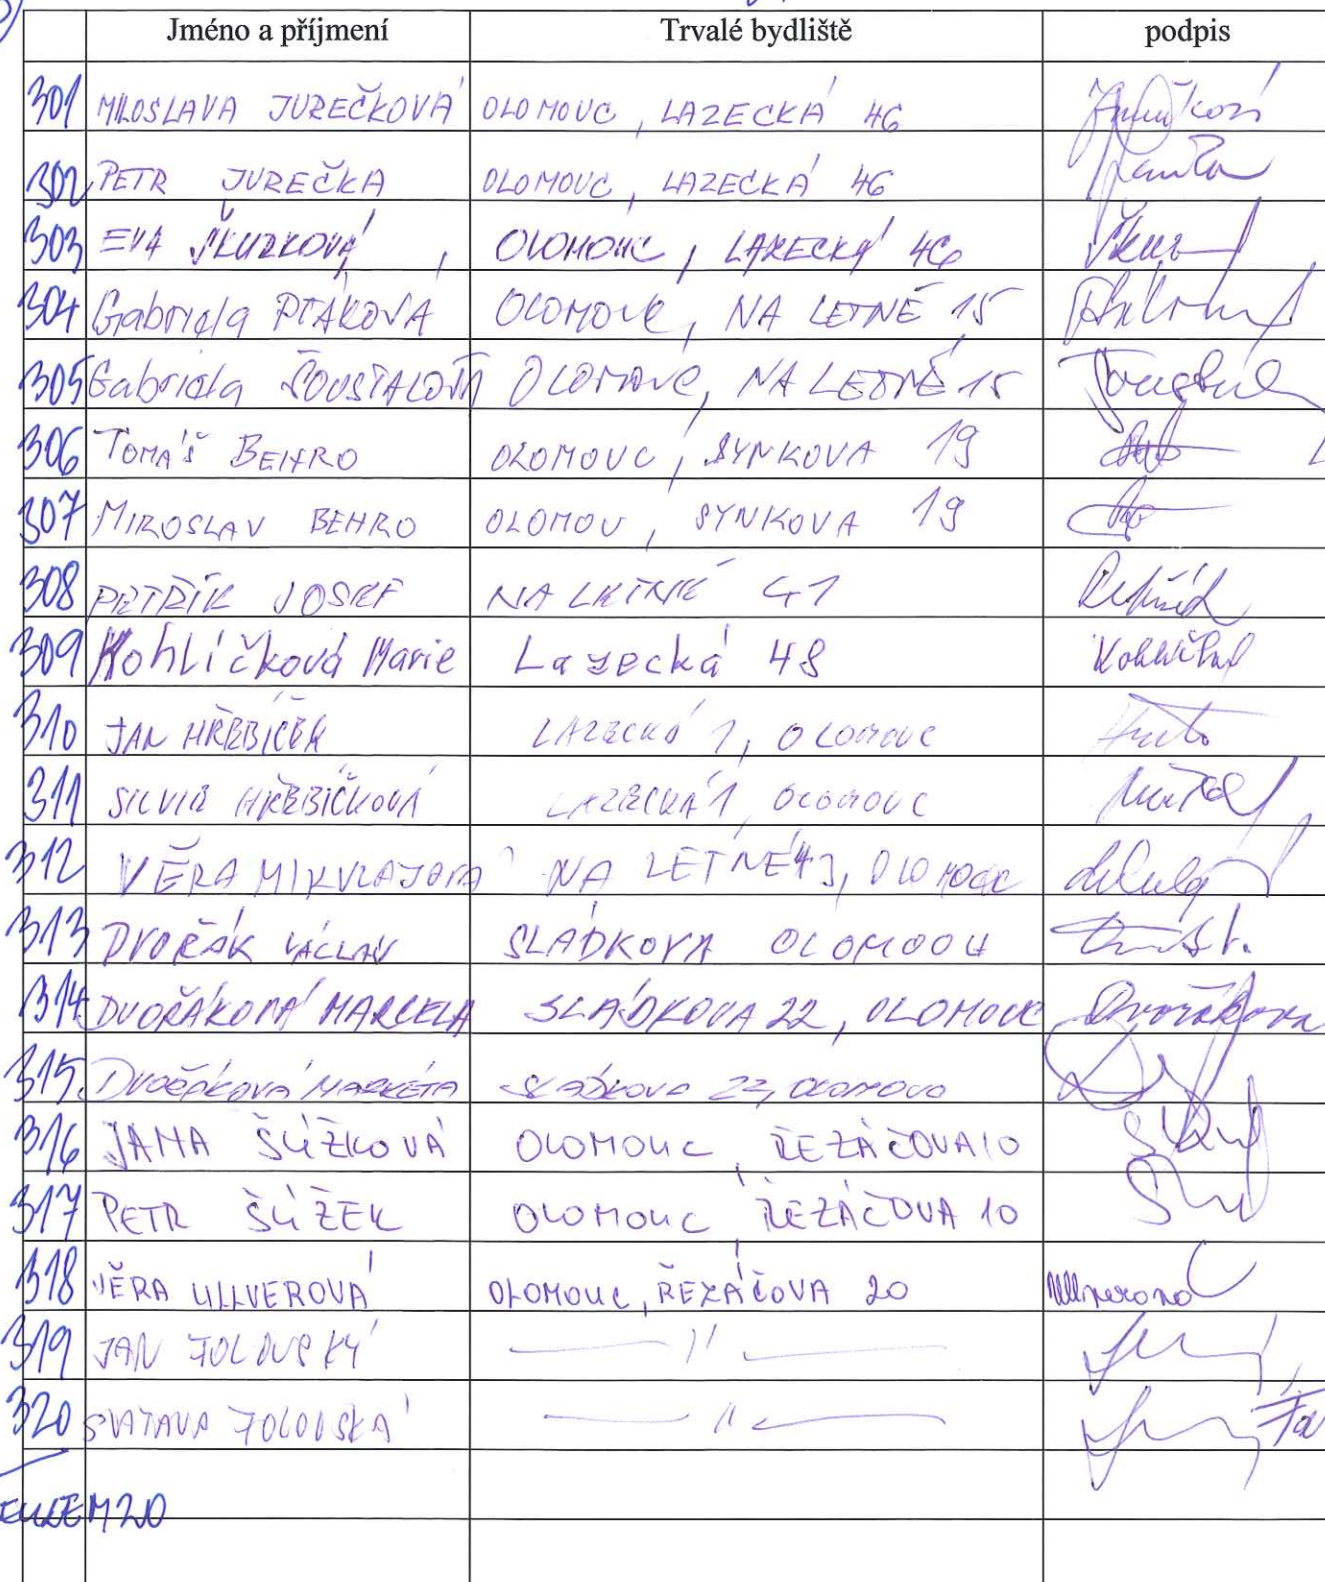 Jméno a příjmení Trvalé bydliště podpis
301 MILOSLAVA JUREČKOVÁ OLOMOUC, LAZECKÁ 46
302 PETR JUREČKA OLOMOUC, LAZECKÁ 46
303 EVA ŠKURKOVÁ, OLOMOUC, LAZECKÁ 46
304 Gabriela PTÁKOVÁ OLOMOUC, NA LETNÉ 15
305 Gabriela ŠOUSTALOVÁ OLOMOUC, NA LETNÉ 15
306 TOMÁŠ BEHRO OLOMOUC, SYNKOVA 19
307 MIROSLAV BEHRO OLOMOU, SYNKOVA 19
308 PETŘÍK JOSEF NA LETNÉ 41
309 Kohlíčková Marie Lazecká 48
310 JAN HŘEBÍČEK LAZECKÁ 1, OLOMOUC
311 SILVIE HŘEBÍČKOVÁ LAZECKÁ 1, OLOMOUC
312 VĚRA MIKULAJOVÁ NA LETNÉ 43, OLOMOUC
313 DVOŘÁK VÁCLAV SLÁDKOVA OLOMOOU
314 DVOŘÁKOVÁ MARCELA SLÁDKOVA 22, OLOMOUC Dvořáková
315. DVOŘÁKOVÁ MARKÉTA SLÁDKOVA 22, OLOMOUC
316 JANA ŠLÍŽKOVÁ OLOMOUC, ŘEZÁČOVA 10
317 PETR ŠLÍŽEK OLOMOUC ŘEZÁČOVA 10
318 VĚRA ULLVEROVÁ OLOMOUC, ŘEZÁČOVA 20
319 JAN FOLOVSKÝ — 〃 —
320 SVATAVA FOLOVSKÁ — 〃 —
20